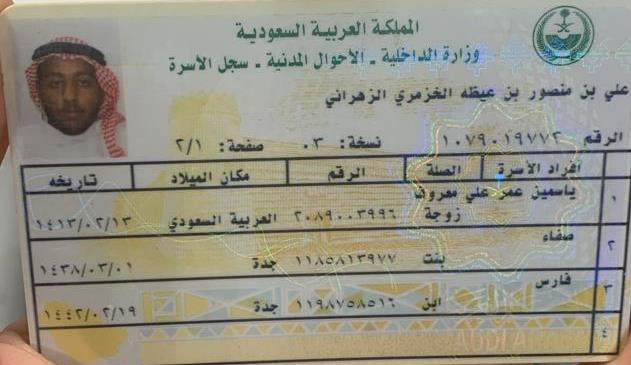 المملكة العربية السعودية
وزارة الداخلية - الأحوال المدنية - سجل الأسرة
علي بن منصور بن عيظه الخزمري الزهراني
الرقم ١٠٧٩٠١٩٧٧٢ نسخة: ٠٣ صفحة: ٢/١
أفراد الأسرة الصلة الرقم مكان الميلاد تاريخه
١ ياسمين عمر علي معروف
زوجة ٢٠٨٩٠٠٣٩٩٦ العربية السعودي ١٤١٣/٠٢/١٣
٢ صفاء
بنت ١١٨٥٨١٣٩٧٧ جدة ١٤٣٨/٠٣/٠١
٣ فارس
ابن ١١٩٨٧٥٨٥١٦ جدة ١٤٤٢/٠٢/١٩
٤